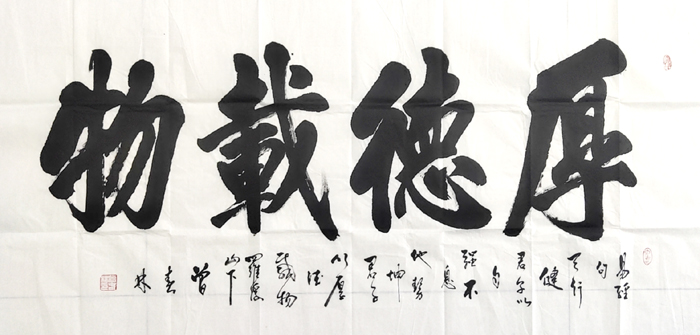 厚德載物
易經
句
天行
健
君子以
自
強不
息
地勢
坤
君子
以厚
德
載物
羅浮
山下
曾
春
林